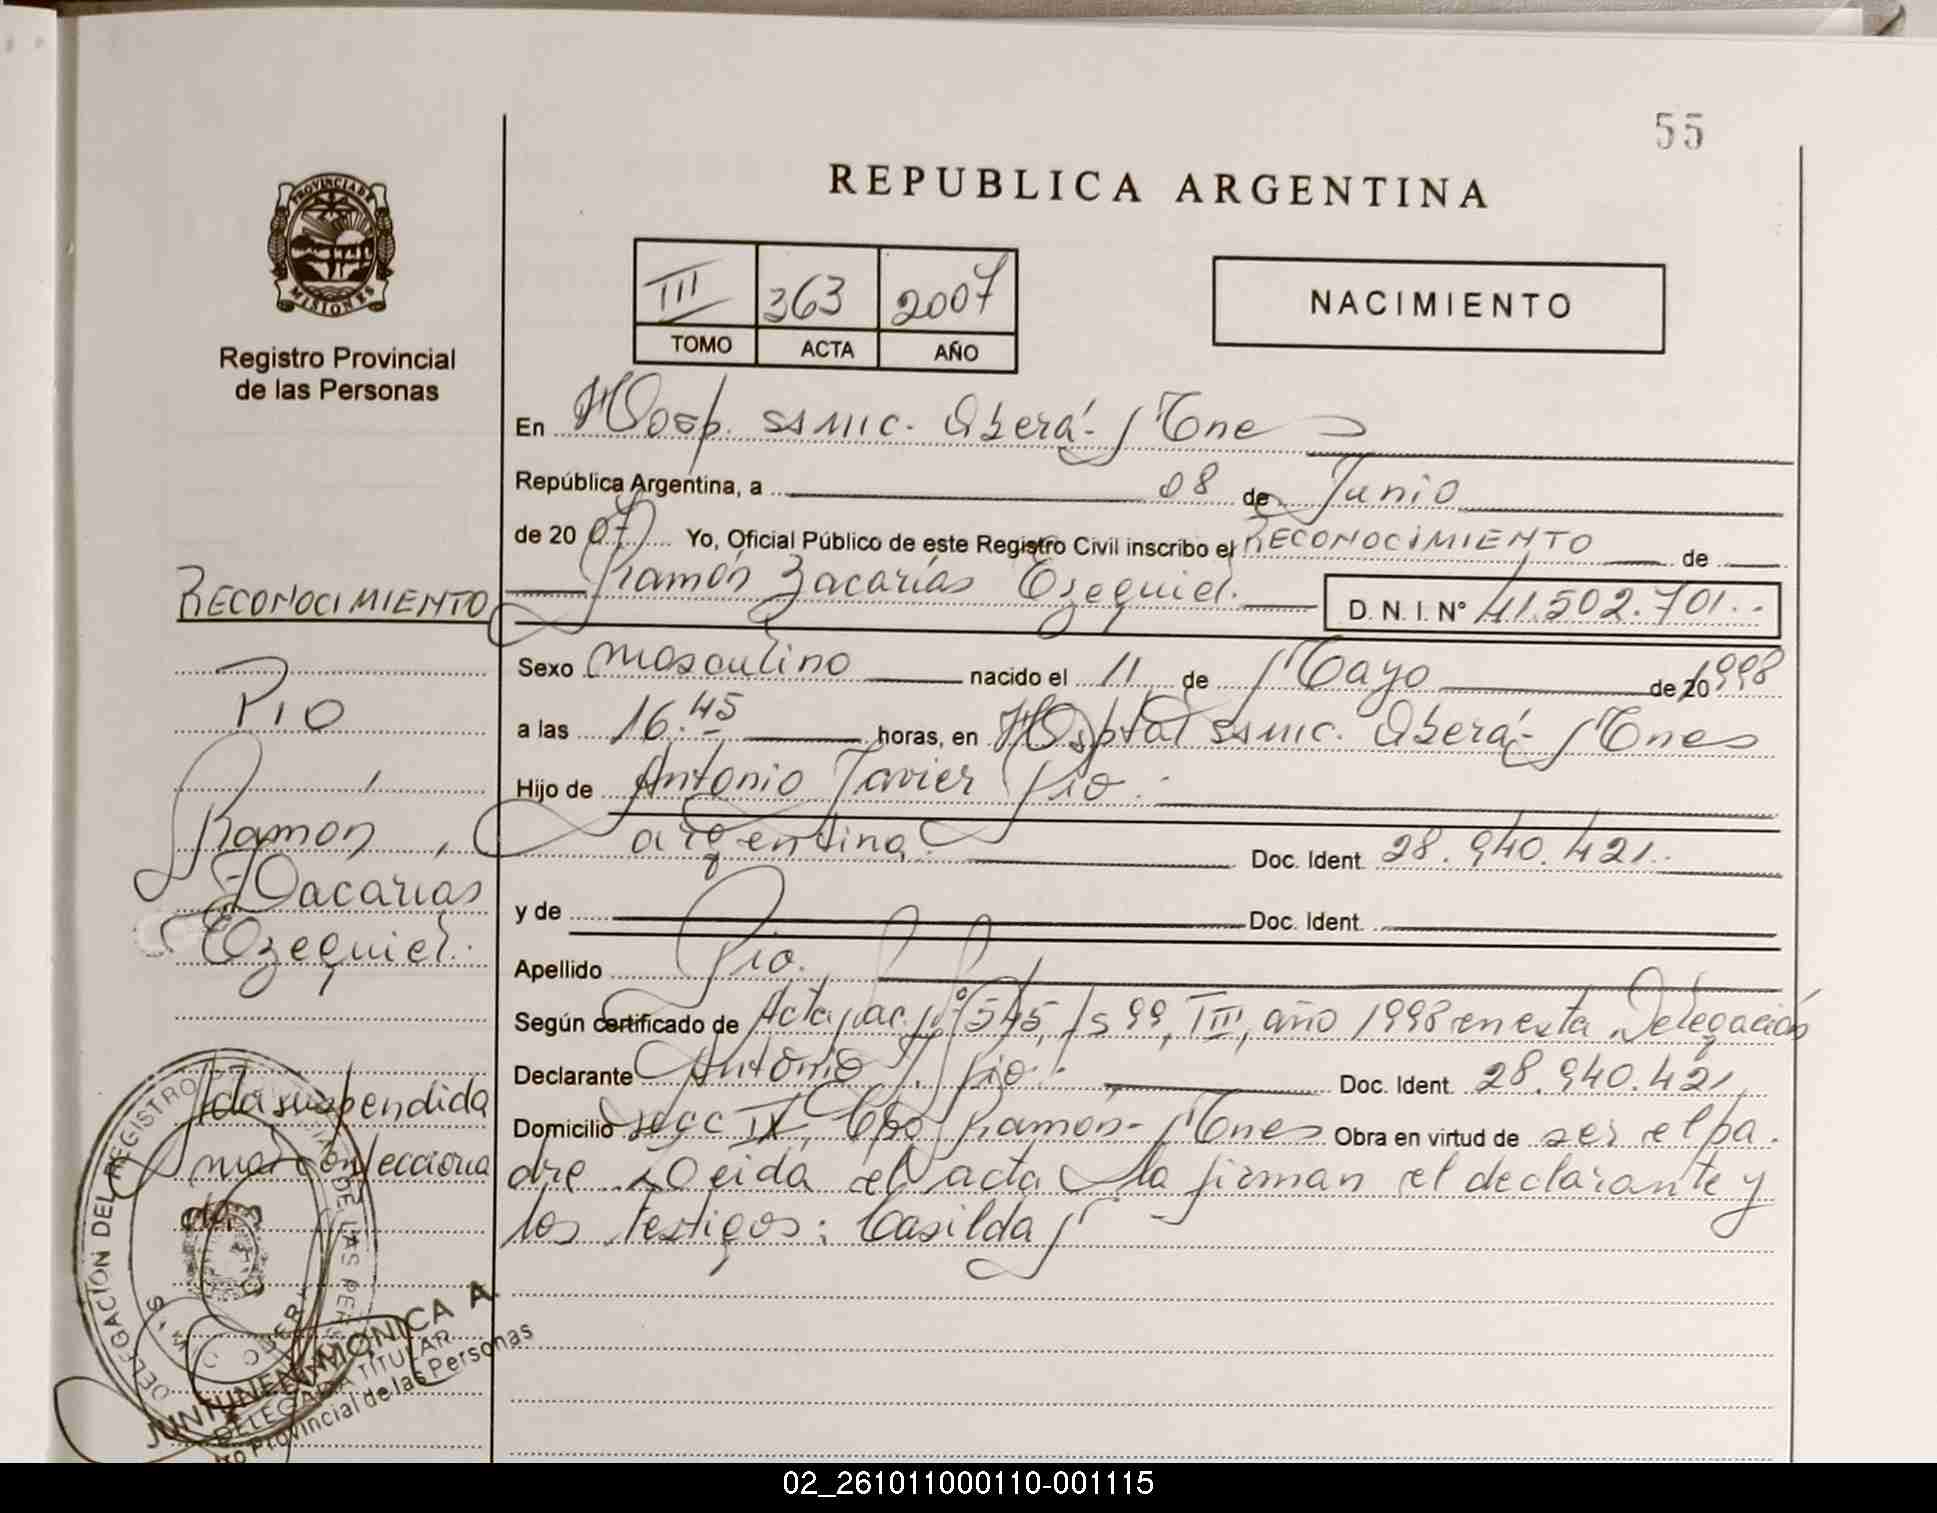 55
REPUBLICA ARGENTINA
PROVINCIA DE
MISIONES
III 363 2007
TOMO ACTA AÑO
NACIMIENTO
Registro Provincial
de las Personas
En Hosp. SSMIC. Oberá - Mnes
República Argentina, a 08 de Junio
de 20 07 Yo, Oficial Público de este Registro Civil inscribo el RECONOCIMIENTO de
Ramón Zacarías Ezequiel. D. N. I. Nº 41.502.701..
Sexo masculino nacido el 11 de Mayo de 20 1998
a las 16.45 horas, en Hosptal SSMIC. Oberá - Mnes
Hijo de Antonio Javier Pio.
argentina Doc. Ident. 28.940.421.
y de Doc. Ident.
Apellido Pio.
Según certificado de Acta nac. Nº 545, fs 99, TIII, año 1998 en esta Delegación
Declarante Antonio J. Pio. Doc. Ident. 28.940.421
Domicilio secc IX, Cpo Ramón - Mnes Obra en virtud de ser el pa.
dre Leida el acta la firman el declarante y
los testigos: Casilda
RECONOCIMIENTO
PIO
Ramón,
Zacarias
Ezequiel.
suspendida
mal confecciona
da.
DELEGACIÓN DEL REGISTRO PROVINCIAL DE LAS PERSONAS
JUNTUNEN MONICA A.
DELEGADA TITULAR
Provincial de las Personas
02_261011000110-001115